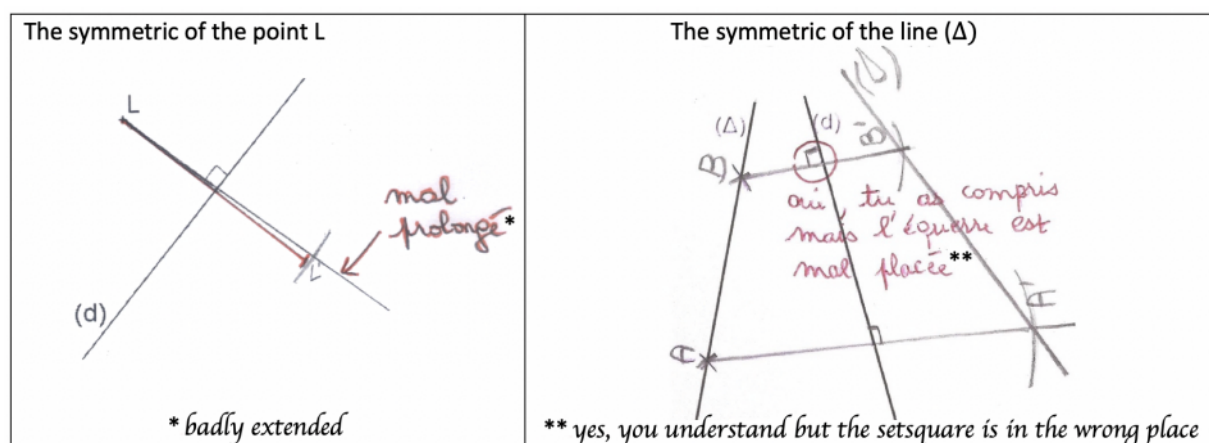 The symmetric of the point L
L
mal
prolongé*
L'
(d)
* badly extended
The symmetric of the line (Δ)
(Δ)
(Δ)
(d)
B
B'
oui, tu as compris
mais l'équerre est
mal placée**
A
A'
** yes, you understand but the setsquare is in the wrong place